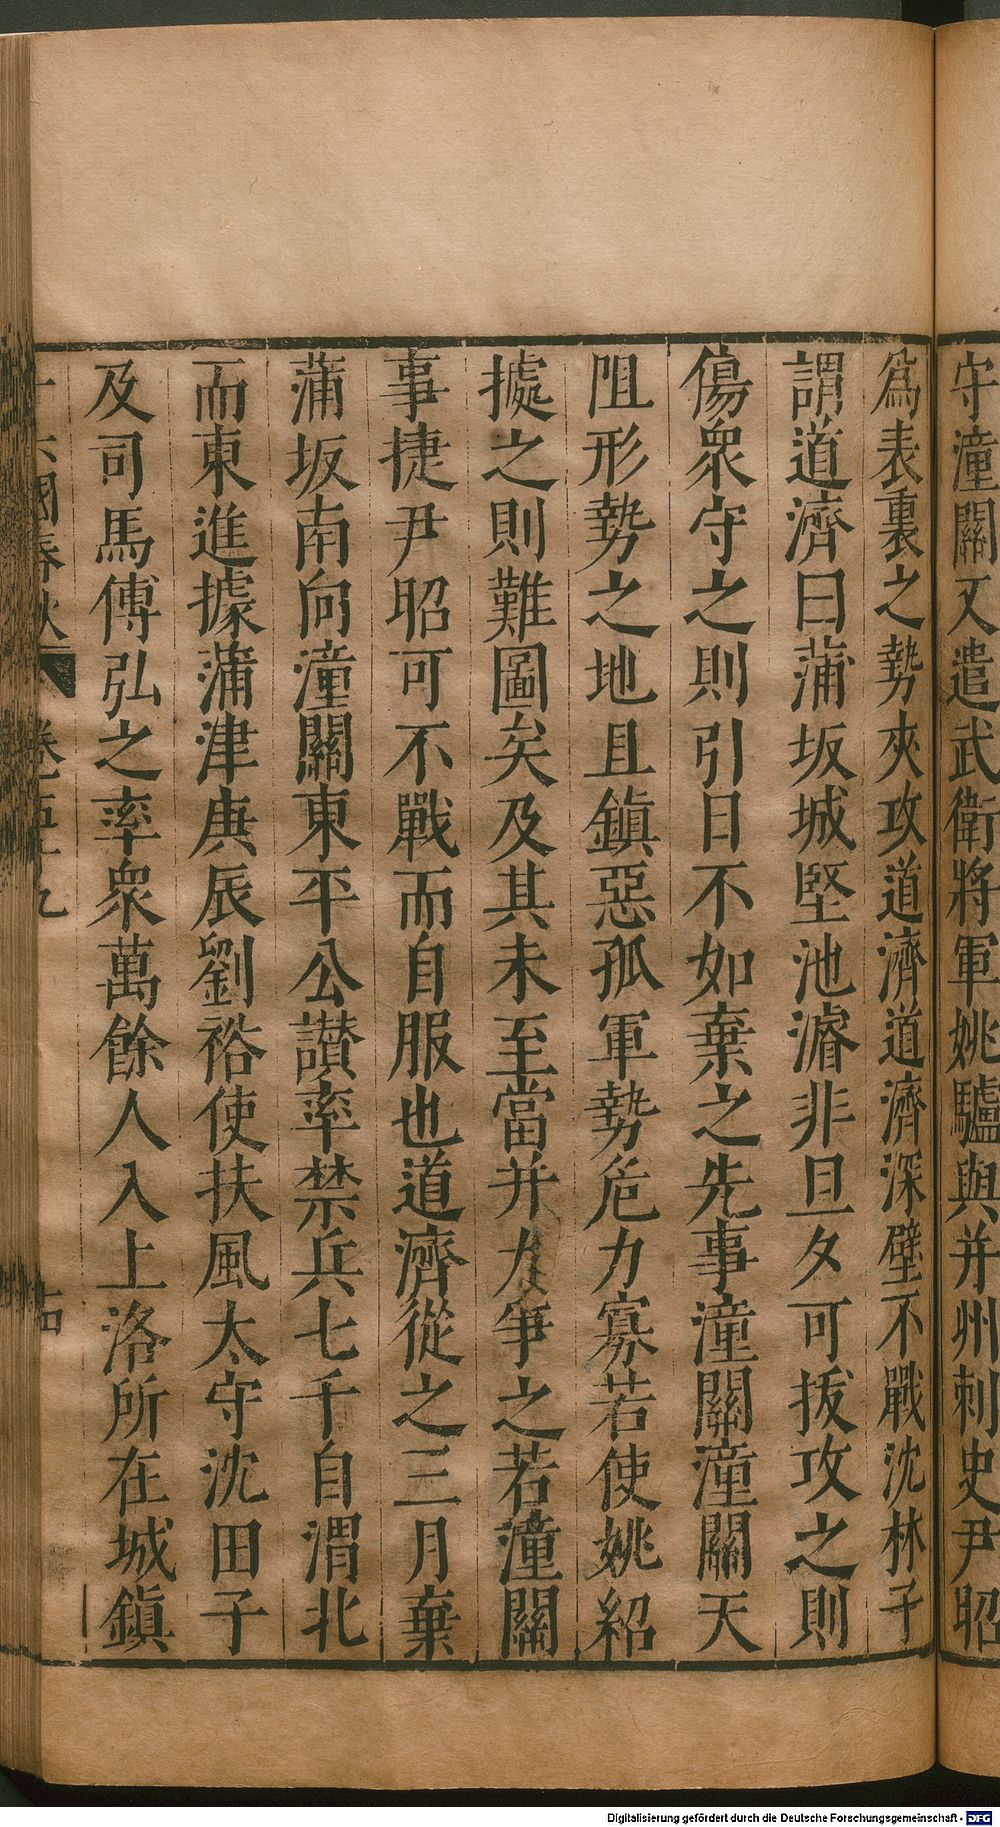 守潼關又遣武衛將軍姚驢與并州刺史尹昭
爲表裏之勢夾攻道濟道濟深壁不戰沈林子
謂道濟曰蒲坂城堅池濬非旦夕可拔攻之則
傷衆守之則引日不如棄之先事潼關潼關天
阻形勢之地且鎭惡孤軍勢危力寡若使姚紹
據之則難圖矣及其未至當并力爭之若潼關
事捷尹昭可不戰而自服也道濟從之三月棄
蒲坂南向潼關東平公讃率禁兵七千自渭北
而東進據蒲津庚辰劉裕使扶風太守沈田子
及司馬傅弘之率衆萬餘人入上洛所在城鎭
十六國春秋 卷五十九
Digitalisierung gefördert durch die Deutsche Forschungsgemeinschaft - DFG